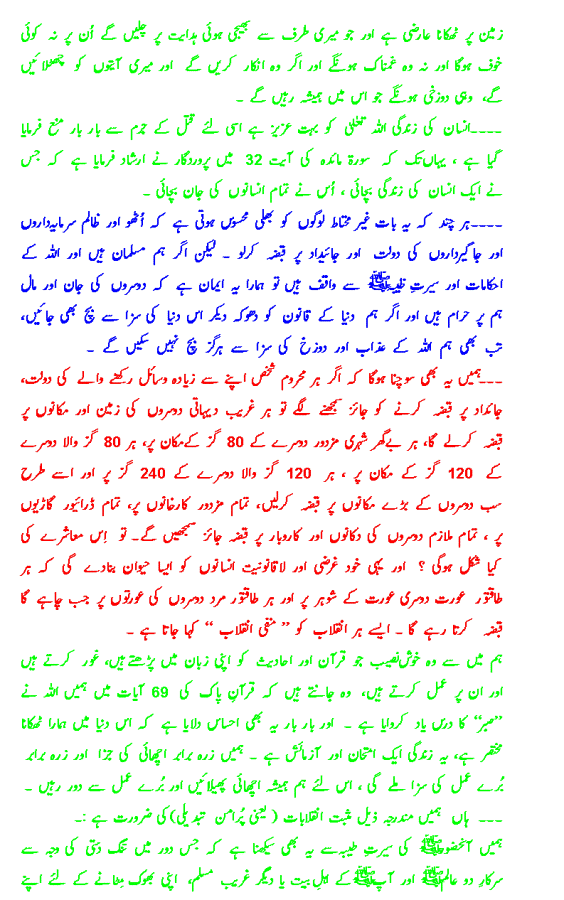 زمین پر ٹھکانا عارضی ہے اور جو میری طرف سے بھیجی ہوئی ہدایت پر چلیں گے اُن پر نہ کوئی
خوف ہوگا اور نہ وہ غمناک ہونگے اور اگر وہ انکار کریں گے اور میری آیتوں کو جھٹلائیں
گے، وہی دوزخی ہونگے جو اس میں ہمیشہ رہیں گے ۔
----انسان کی زندگی اللہ تعالیٰ کو بہت عزیز ہے اسی لئے قتل کے جرم سے بار بار منع فرمایا
گیا ہے ، یہاں تک کہ سورۃ مائدہ کی آیت 32 میں پروردگار نے ارشاد فرمایا ہے کہ جس
نے ایک انسان کی زندگی بچائی ، اُس نے تمام انسانوں کی جان بچائی ۔
----ہر چند کہ یہ بات غیر محتاط لوگوں کو بھلی محسوس ہوتی ہے کہ اُٹھو اور ظالم سرمایہ داروں
اور جاگیرداروں کی دولت اور جائیداد پر قبضہ کرلو ۔ لیکن اگر ہم مسلمان ہیں اور اللہ کے
احکامات اور سیرتِ طیبہﷺ سے واقف ہیں تو ہمارا یہ ایمان ہے کہ دوسروں کی جان اور مال
ہم پر حرام ہیں اور اگر ہم دنیا کے قانون کو دھوکہ دیکر اس دنیا کی سزا سے بچ بھی جائیں،
تب بھی ہم اللہ کے عذاب اور دوزخ کی سزا سے ہرگز بچ نہیں سکیں گے ۔
---ہمیں یہ بھی سوچنا ہوگا کہ اگر ہر محروم شخص اپنے سے زیادہ وسائل رکھنے والے کی دولت،
جائداد پر قبضہ کرنے کو جائز سمجھنے لگے تو ہر غریب دیہاتی دوسروں کی زمین اور مکانوں پر
قبضہ کرلے گا، ہر بےگھر شہری مزدور دوسرے کے 80 گز کےمکان پر، ہر 80 گز والا دوسرے
کے 120 گز کے مکان پر ، ہر 120 گز والا دوسرے کے 240 گز پر اور اسے طرح
سب دوسروں کے بڑے مکانوں پر قبضہ کرلیں، تمام مزدور کارخانوں پر، تمام ڈرائیور گاڑیوں
پر ، تمام ملازم دوسروں کی دکانوں اور کاروبار پر قبضہ جائز سمجھیں گے۔ تو اِس معاشرے کی
کیا شکل ہوگی ؟ اور یہی خود غرضی اور لاقانونیت انسانوں کو ایسا حیوان بنادے گی کہ ہر
طاقتور عورت دوسری عورت کے شوہر پر اور ہر طاقتور مرد دوسروں کی عورتوں پر جب چاہے گا
قبضہ کرتا رہے گا ۔ ایسے ہر انقلاب کو ’’ منفی انقلاب ‘‘ کہا جاتا ہے ۔
ہم میں سے وہ خوش نصیب جو قرآن اور احادیث کو اپنی زبان میں پڑھتے ہیں، غور کرتے ہیں
اور ان پر عمل کرتے ہیں، وہ جانتے ہیں کہ قرآنِ پاک کی 69 آیات میں ہمیں اللہ نے
’’صبر‘‘ کا درس یاد کروایا ہے ۔ اور بار بار یہ بھی احساس دلایا ہے کہ اس دنیا میں ہمارا ٹھکانا
مختصر ہے، یہ زندگی ایک امتحان اور آزمائش ہے ۔ ہمیں زرہ برابر اچھائی کی جزا اور زرہ برابر
بُرے عمل کی سزا ملے گی ، اس لئے ہم ہمیشہ اچھائی پھیلائیں اور بُرے عمل سے دور رہیں ۔
--- ہاں ہمیں مندرجہ ذیل مثبت انقلابات ( یعنی پُرامن تبدیلی) کی ضرورت ہے :۔
ہمیں آنحضورﷺ کی سیرتِ طیبہ سے یہ بھی سیکھنا ہے کہ جس دور میں تنگ دستی کی وجہ سے
سرکارِ دو عالمﷺ اور آپﷺ کے اہلِ بیت یا دیگر غریب مسلم، اپنی بھوک مِٹانے کے لئے اپنے